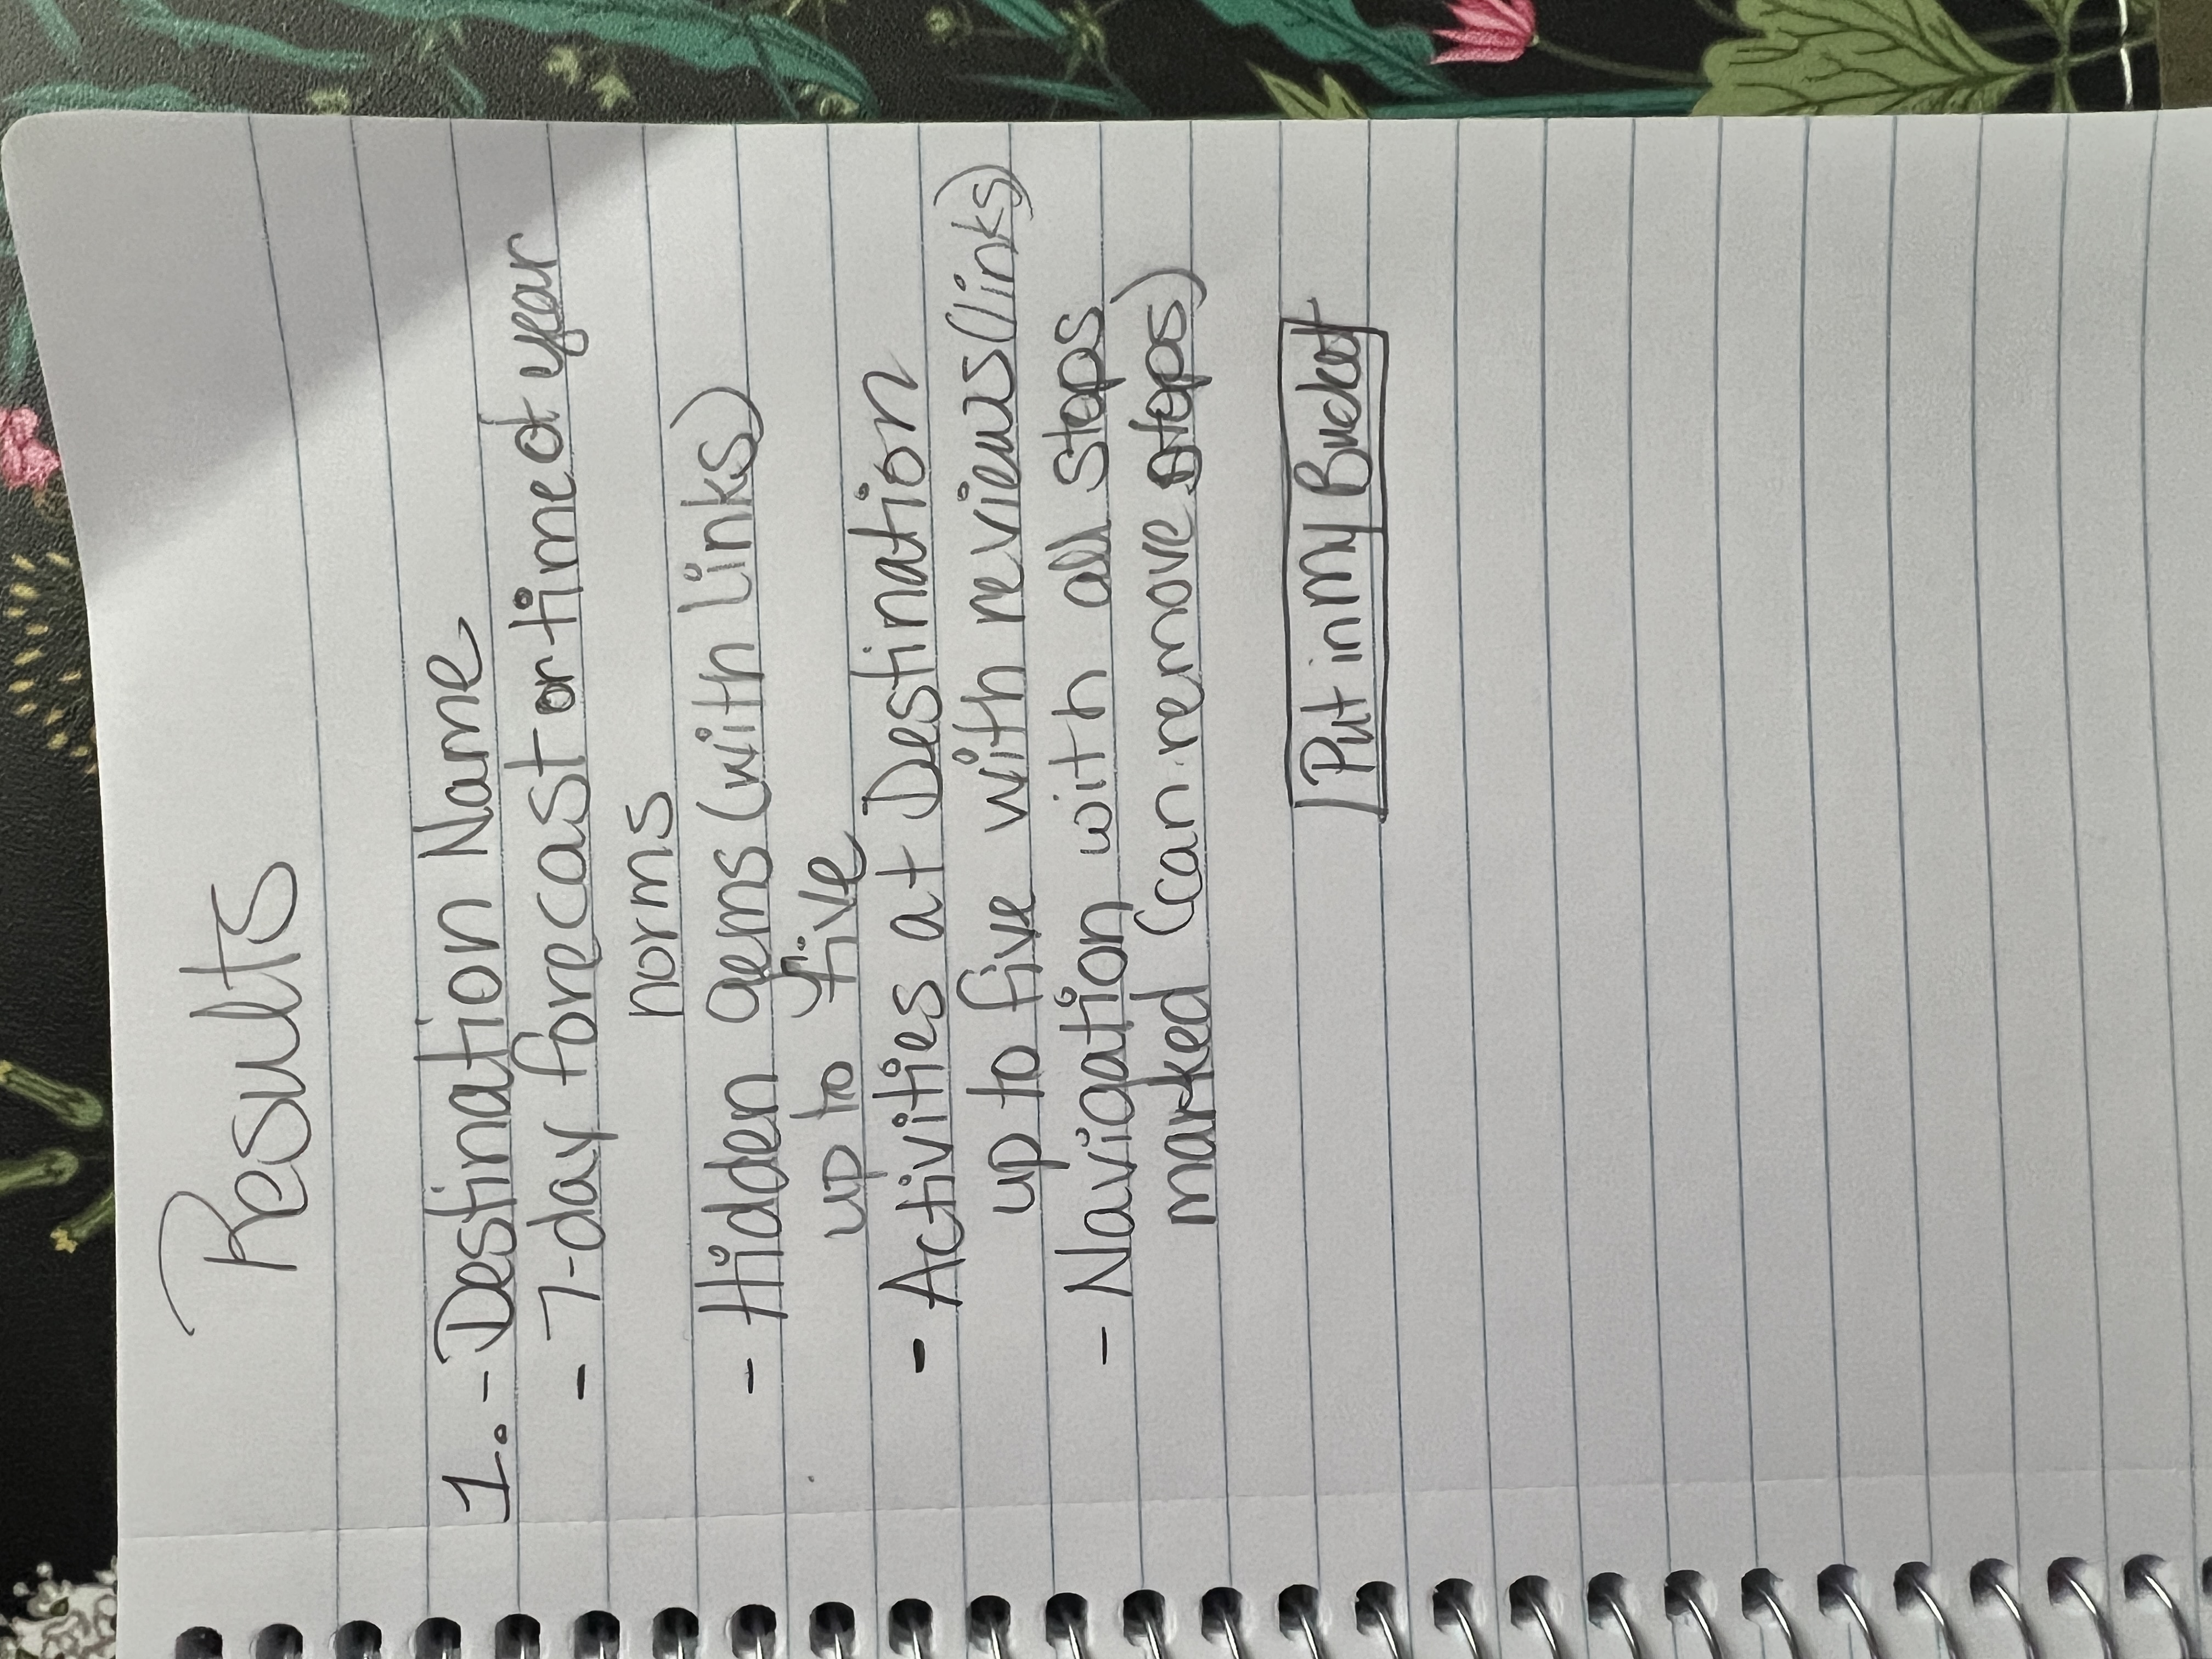 Results
1. - Destination Name
- 7-day forecast or time of year
norms
- Hidden gems (with links)
up to five
- Activities at Destination
up to five with reviews (links)
- Navigation with all stops
marked (can remove stops)
Put in My Bucket